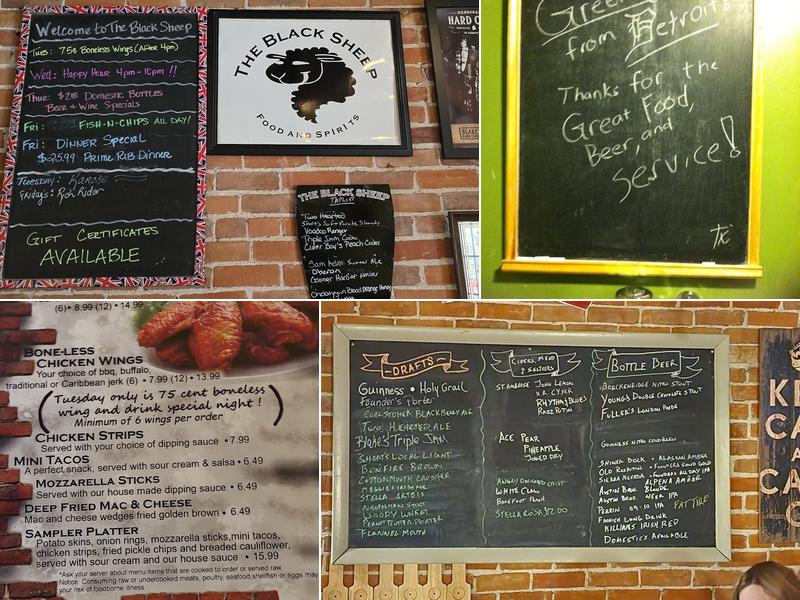 Welcome to The Black Sheep
Tues: 75¢ Boneless Wings (After 4pm)
Wed: Happy Hour 4pm-10pm !!
Thur: Domestic Bottles
Beer & Wine Specials
Fri: FISH-N-CHIPS ALL DAY!
Fri: DINNER Special
$25.99 Prime Rib Dinner
Tuesday: Karaoke
Friday's:
GIFT CERTIFICATES
AVAILABLE
THE BLACK SHEEP
FOOD AND SPIRITS
THE BLACK SHEEP
TAPLIST
Two Hearted
Voodoo Ranger
Cider Boy's Peach Cider
Sam Adam Summer Ale
Oberon
HARD
from Detroit
Thanks for the
Great Food,
Beer, and
Service!
(6) • 8.99 (12) • 14.99
BONE-LESS
CHICKEN WINGS
Your choice of bbq, buffalo,
traditional or Caribbean jerk (6) • 7.99 (12) • 13.99
Tuesday only is 75 cent boneless
wing and drink special night !
Minimum of 6 wings per order
CHICKEN STRIPS
Served with your choice of dipping sauce • 7.99
MINI TACOS
A perfect snack, served with sour cream & salsa • 6.49
MOZZARELLA STICKS
Served with our house made dipping sauce • 6.49
DEEP FRIED MAC & CHEESE
Mac and cheese wedges fried golden brown • 6.49
SAMPLER PLATTER
Potato skins, onion rings, mozzarella sticks, mini tacos,
chicken strips, fried pickle chips and breaded cauliflower,
served with sour cream and our house sauce • 15.99
*Ask your server about menu items that are cooked to order or served raw
Notice: Consuming raw or undercooked meats, poultry, seafood, shellfish or eggs may
your risk of foodborne illness
-DRAFTS-
Guinness • Holy Grail
Founder's Porter
BLACKBERRY ALE
Two HEARTED ALE
Blake's Triple Jam
SHORTS LOCAL LIGHT
BONFIRE BROWN
COTTONMOUTH CRUSHER
STELLA ARTOIS
WOODY WHEAT
PEANUT BUTTER PORTER
FLANNEL MOUTH
CIDERS, MEAD
& SELTZERS
ST AMBROSE JOHN LEMON
X.R. CYSER
RHYTHM & BLUES
RAZZ
ACE PEAR
PINEAPPLE
JOKER DRY
ANGRY ORCHARD CRISP
WHITE CLAW
STELLA ROSA $12.00
BOTTLE BEER
BRECKENRIDGE NITRO STOUT
YOUNG'S DOUBLE CHOCOLATE STOUT
FULLER'S LONDON PRIDE
GUINNESS NITRO COLD BREW
SHINER BOCK • ALASKAN AMBER
OLD RASPUTIN • FOUNDERS SOLID GOLD
SIERRA NEVADA • FOUNDERS ALL DAY IPA
ALPENA AMBER
AUSTIN BROS. BLONDE
AUSTIN BROS. NSFR IPA
PERRIN 59:10 IPA FAT TIRE
FINNISH LONG DRINK
KILLIANS IRISH RED
DOMESTICS AVAILABLE